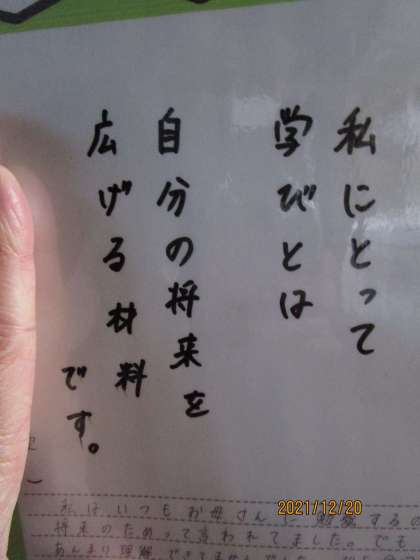 私にとって
学びとは
自分の将来を
広げる材料
です。
2021/12/20
私はいつもお母さんに勉強するの
将来のためって言われてました。でも
あんまり理解できてませんでした